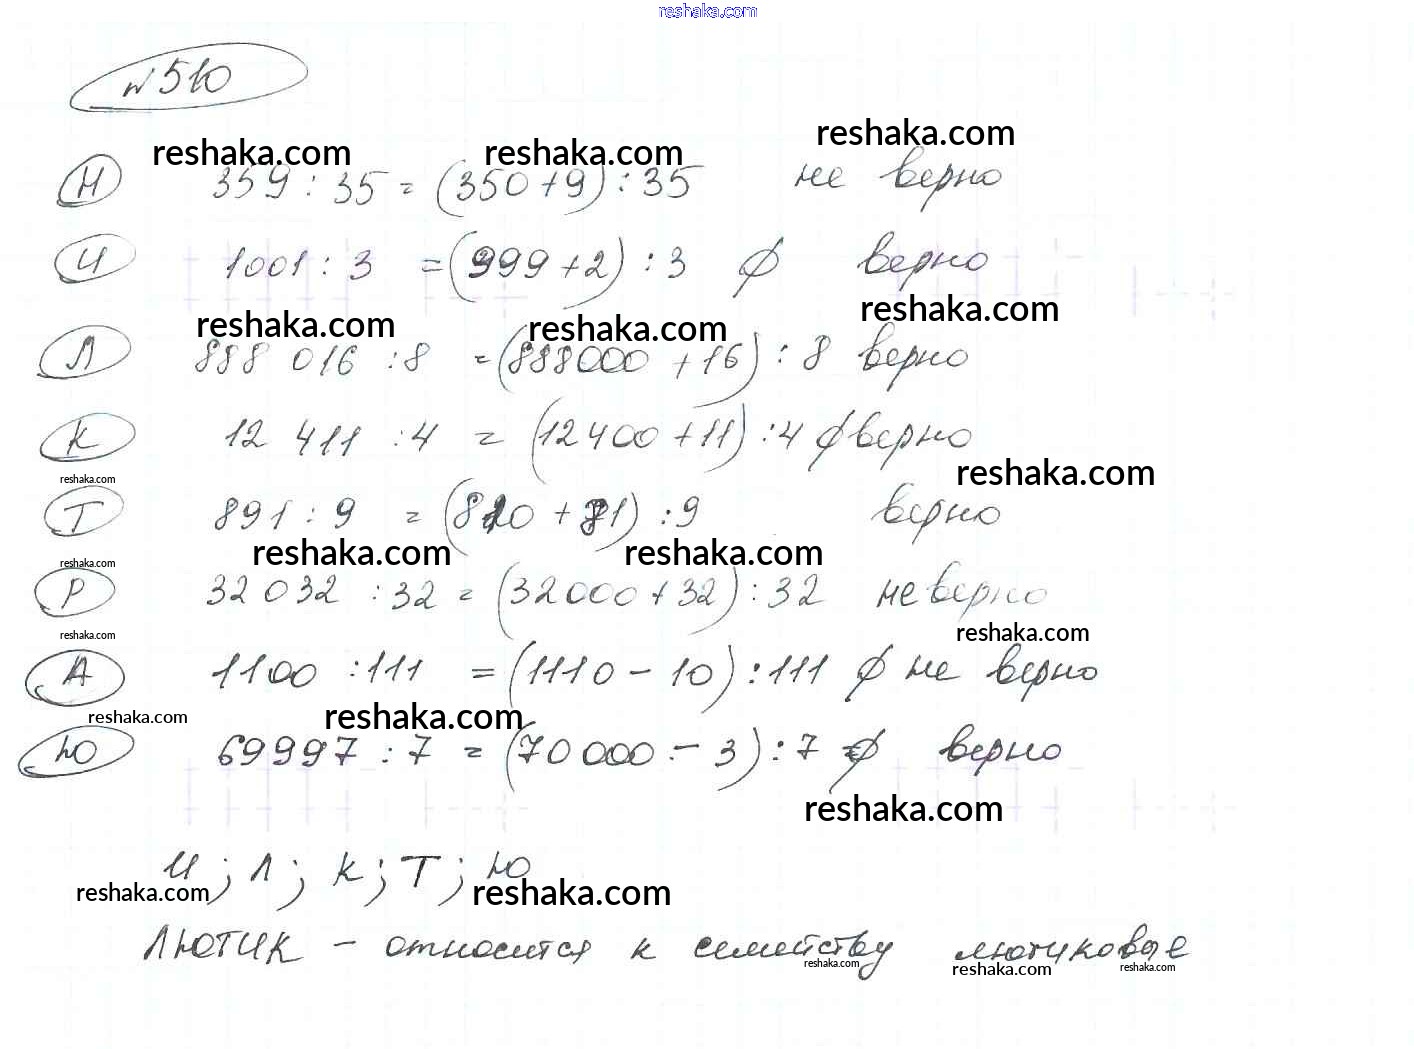 reshaka.com
№ 510
reshaka.com reshaka.com reshaka.com
Н 359 : 35 = (350 + 9) : 35 не верно
И 1001 : 3 = (999 + 2) : 3 ∅ верно
reshaka.com reshaka.com reshaka.com
Л 888 016 : 8 = (888000 + 16) : 8 верно
К 12 411 : 4 = (12400 + 11) : 4 ∅ верно
reshaka.com reshaka.com
Т 891 : 9 = (810 + 81) : 9 верно
reshaka.com reshaka.com reshaka.com
Р 32 032 : 32 = (32000 + 32) : 32 не верно
reshaka.com reshaka.com
А 1100 : 111 = (1110 - 10) : 111 ∅ не верно
reshaka.com reshaka.com
Ю 69997 : 7 = (70 000 - 3) : 7 ∅ верно
reshaka.com
И ; Л ; К ; Т ; Ю
reshaka.com reshaka.com
ЛЮТИК - относится к семейству лютиковые
reshaka.com reshaka.com reshaka.com